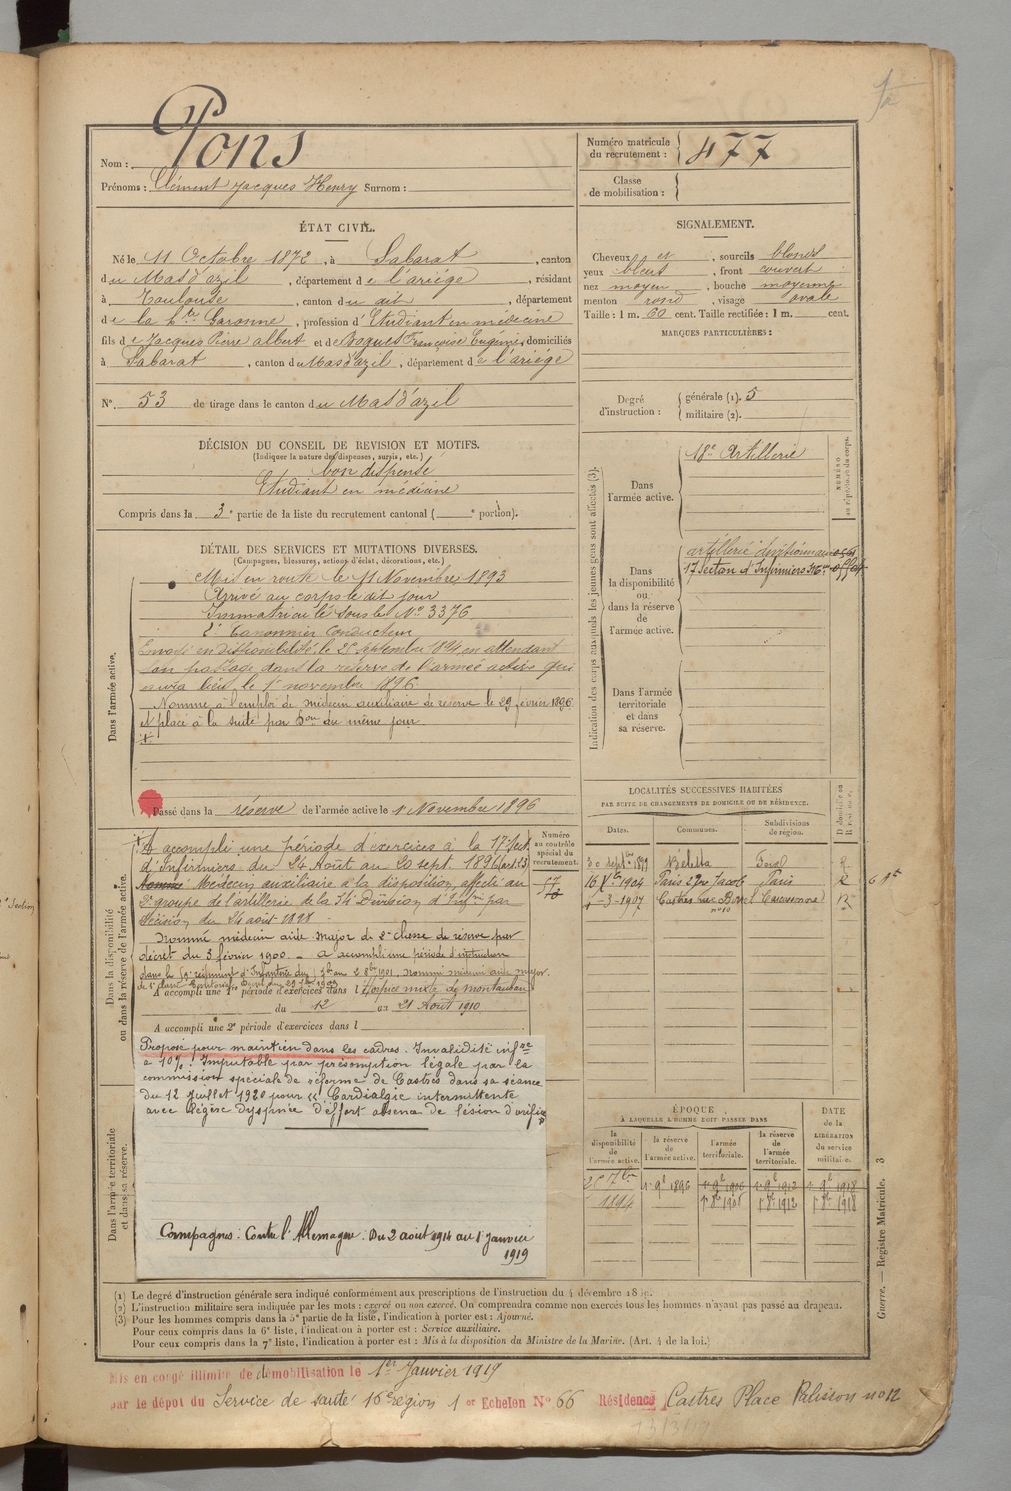 Nom : Pons
Prénoms : Clément Jacques Henry Surnom :
Numéro matricule du recrutement : 477
Classe de mobilisation :
ÉTAT CIVIL.
Né le 11 Octobre 1872, à Sabarat, canton
du Mas d'azil, département de l'ariége, résidant
à Toulouse, canton du dit, département
de la Hte Garonne, profession d'Etudiant en médecine
fils de Jacques Pierre albert et de Françoise Eugénie, domiciliés
à Sabarat, canton du Mas d'azil, département de l'ariége
No. 53 de tirage dans le canton du Mas d'azil
SIGNALEMENT.
Cheveux et, sourcils blonds
yeux bleus, front couvert
nez moyen, bouche moyenne
menton rond, visage ovale
Taille : 1 m. 60 cent. Taille rectifiée : 1 m. cent.
MARQUES PARTICULIÈRES :
Degré d'instruction : générale (1). 5
militaire (2).
DÉCISION DU CONSEIL DE REVISION ET MOTIFS.
(Indiquer la nature des dispenses, sursis, etc.)
bon dispensé
Etudiant en médecine
Compris dans la 3e partie de la liste du recrutement cantonal ( e portion).
DÉTAIL DES SERVICES ET MUTATIONS DIVERSES.
(Campagnes, blessures, actions d'éclat, décorations, etc.)
Dans l'armée active.
Mis en route le 11 Novembre 1893
Arrivé au corps le dit jour
Immatriculé sous le No 3376
2e Canonnier Conducteur
Envoyé en disponibilité, le 25 septembre 1894, en attendant
son passage dans la réserve de l'armée active qui
aura lieu le 1er novembre 1896.
Nommé à l'emploi de médecin auxiliaire de réserve le 29 février 1896
et placé à la suite par Don du même jour
Passé dans la réserve de l'armée active le 1 Novembre 1896
Indication des corps auxquels les jeunes gens sont affectés (3).
NUMÉRO au répertoire du corps.
Dans l'armée active.
18e Artillerie
Dans la disponibilité ou dans la réserve de l'armée active.
artillerie divisionnaire
17 Section d'Infirmiers
Dans l'armée territoriale et dans sa réserve.
LOCALITÉS SUCCESSIVES HABITÉES
PAR SUITE DE CHANGEMENTS DE DOMICILE OU DE RÉSIDENCE.
Dates. Communes. Subdivisions de région.
30 septbre 1899 Foix R
16 Xbre 1904 Paris Jacob Paris R
4-3-1907 Castres rue no 10 Carcassonne R
Dans la disponibilité ou dans la réserve de l'armée active.
Numéro au contrôle spécial du recrutement.
A accompli une période d'exercices à la 17e Sect.
d'Infirmiers du 24 Août au 20 sept. 1896
Nommé Médecin auxiliaire à la disposition, affecté au
2e groupe de l'artillerie de la 34e Division d'Infrie par
décision du 24 août 1898
Nommé médecin aide major de 2e classe de réserve par
décret du 3 février 1900. - a accompli une période d'instruction
A accompli une 1re période d'exercices dans l'Hospice mixte de montauban
du 12 au 21 Août 1910
A accompli une 2e période d'exercices dans l
Dans l'armée territoriale et dans sa réserve.
Proposé pour maintien dans les cadres. Invalidité infre
à 10%. Imputable par présomption légale par la
commission spéciale de réforme de Castres dans sa séance
du 12 Juillet 1920 pour « Cardialgie intermittente
avec légère dyspnée d'effort absence de lésion d'orifice »
Campagnes : Contre l'Allemagne. Du 2 août 1914 au 1er Janvier
1919
ÉPOQUE
À LAQUELLE L'HOMME DOIT PASSER DANS
la disponibilité de l'armée active. la réserve de l'armée active. l'armée territoriale. la réserve de l'armée territoriale.
DATE de la LIBÉRATION du service militaire.
25 7bre 1894 1er 9bre 1896 1er 9bre 1906 1er 9bre 1912 1er 9bre 1918
1er 8bre 1906 1er 8bre 1912 1er 8bre 1918
Guerre. — Registre Matricule. 3
(1) Le degré d'instruction générale sera indiqué conformément aux prescriptions de l'instruction du 4 décembre 1889.
(2) L'instruction militaire sera indiquée par les mots : exercé ou non exercé. On comprendra comme non exercés tous les hommes n'ayant pas passé au drapeau.
(3) Pour les hommes compris dans la 5e partie de la liste, l'indication à porter est : Ajourné.
Pour ceux compris dans la 6e liste, l'indication à porter est : Service auxiliaire.
Pour ceux compris dans la 7e liste, l'indication à porter est : Mis à la disposition du Ministre de la Marine. (Art. 4 de la loi.)
Mis en congé illimité de démobilisation le 1er Janvier 1919
par le dépôt du Service de santé 16e région 1er Echelon No 66 Résidence Castres Place Pelisson no 12